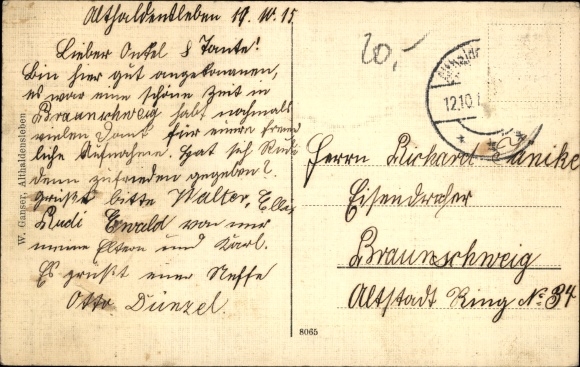 Althaldensleben 12.10.15
Lieber Onkel & Tante!
Bin hier gut angekommen,
es war eine schöne Zeit in
Braunschweig habt nochmals
vielen Dank für eure freund
liche Aufnahme. Hat sich Rudi
denn zufrieden gegeben?
Grüßt bitte Walter, Ella,
Rudi Ewald von mir
meine Eltern und Karl.
Es grüßt euer Neffe
Otto Dünzel.
W. Ganser, Althaldensleben.
20,-
12.10.1
Herrn Rickard
Eisendreher
Braunschweig
Altstadt Ring No. 34
8065